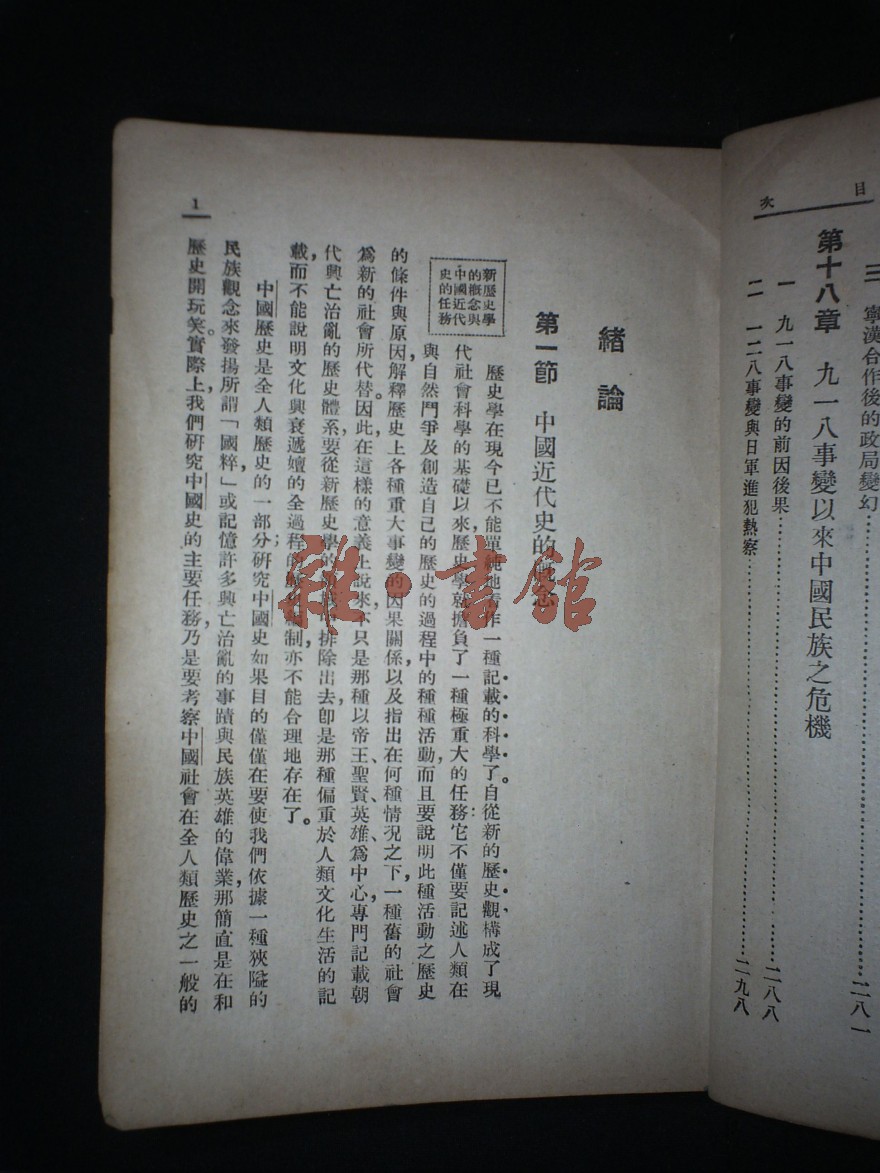 目次
三 寧漢合作後的政局變幻……二八一
第十八章 九一八事變以來中國民族之危機
一 九一八事變的前因後果……二八八
二 一二八事變與日軍進犯熱察……二九八
1
緒論
第一節 中國近代史的概念
新歷史學
的概念與
中國近代
史的任務
歷史學在現今已不能單純地看作一種記載的科學了。自從新的歷史觀構成了現
代社會科學的基礎以來,歷史學就擔負了一種極重大的任務:它不僅要記述人類在
與自然鬥爭及創造自己的歷史的過程中的種種活動,而且要說明此種活動之歷史
的條件與原因,解釋歷史上各種重大事變的因果關係,以及指出在何種情況之下,一種舊的社會
爲新的社會所代替。因此,在這樣的意義上說來,不只是那種以帝王、聖賢、英雄、爲中心,專門記載朝
代興亡治亂的歷史體系,要從新歷史學的域排除出去,卽是那種偏重於人類文化生活的記
載,而不能說明文化興衰遞嬗的全過程的制,亦不能合理地存在了。
中國歷史是全人類歷史的一部分;研究中國史如果目的僅僅在要使我們依據一種狹隘的
民族觀念來發揚所謂「國粹,」或記憶許多興亡治亂的事蹟與民族英雄的偉業,那簡直是在和
歷史開玩笑。實際上,我們研究中國史的主要任務,乃是要考察中國社會在全人類歷史之一般的
雜·書館